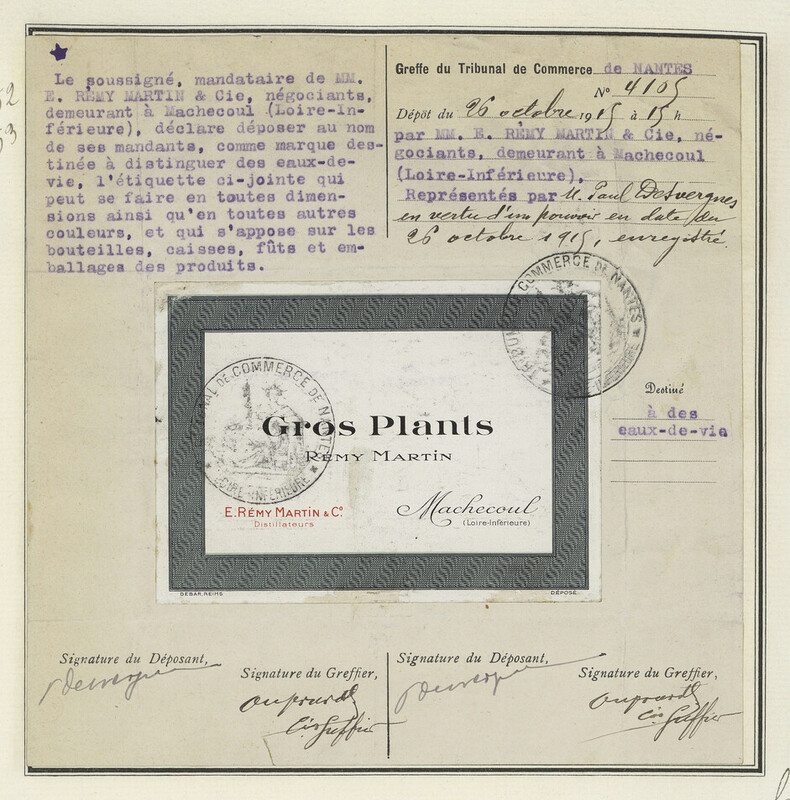 Le soussigné, mandataire de MM.
E. REMY MARTIN & Cie, négociants,
demeurant à Machecoul (Loire-In-
férieure), déclare déposer au nom
de ses mandants, comme marque des-
tinée à distinguer des eaux-de-
vie, l'étiquette ci-jointe qui
peut se faire en toutes dimen-
sions ainsi qu'en toutes autres
couleurs, et qui s'appose sur les
bouteilles, caisses, fûts et em-
ballages des produits.
Greffe du Tribunal de Commerce de NANTES
N° 4105
Dépôt du 26 octobre 1915 à 15 h
par MM. E. REMY MARTIN & Cie, né-
gociants, demeurant à Machecoul
(Loire-Inférieure),
Représentés par M. Paul Desvergnes
en vertu d'un pouvoir en date du
26 octobre 1915, enregistré.
COMMERCE DE NANTES
TRIBUNAL DE COMMERCE DE NANTES
LOIRE-INFÉRIEURE
Gros Plants
RÉMY MARTIN
E. RÉMY MARTIN & Cº
Distillateurs
Machecoul
(Loire-Inférieure)
DEBAR, REIMS
DÉPOSÉ
Destiné
à des
eaux-de-vie
Signature du Déposant,
Signature du Greffier,
Signature du Déposant,
Signature du Greffier,